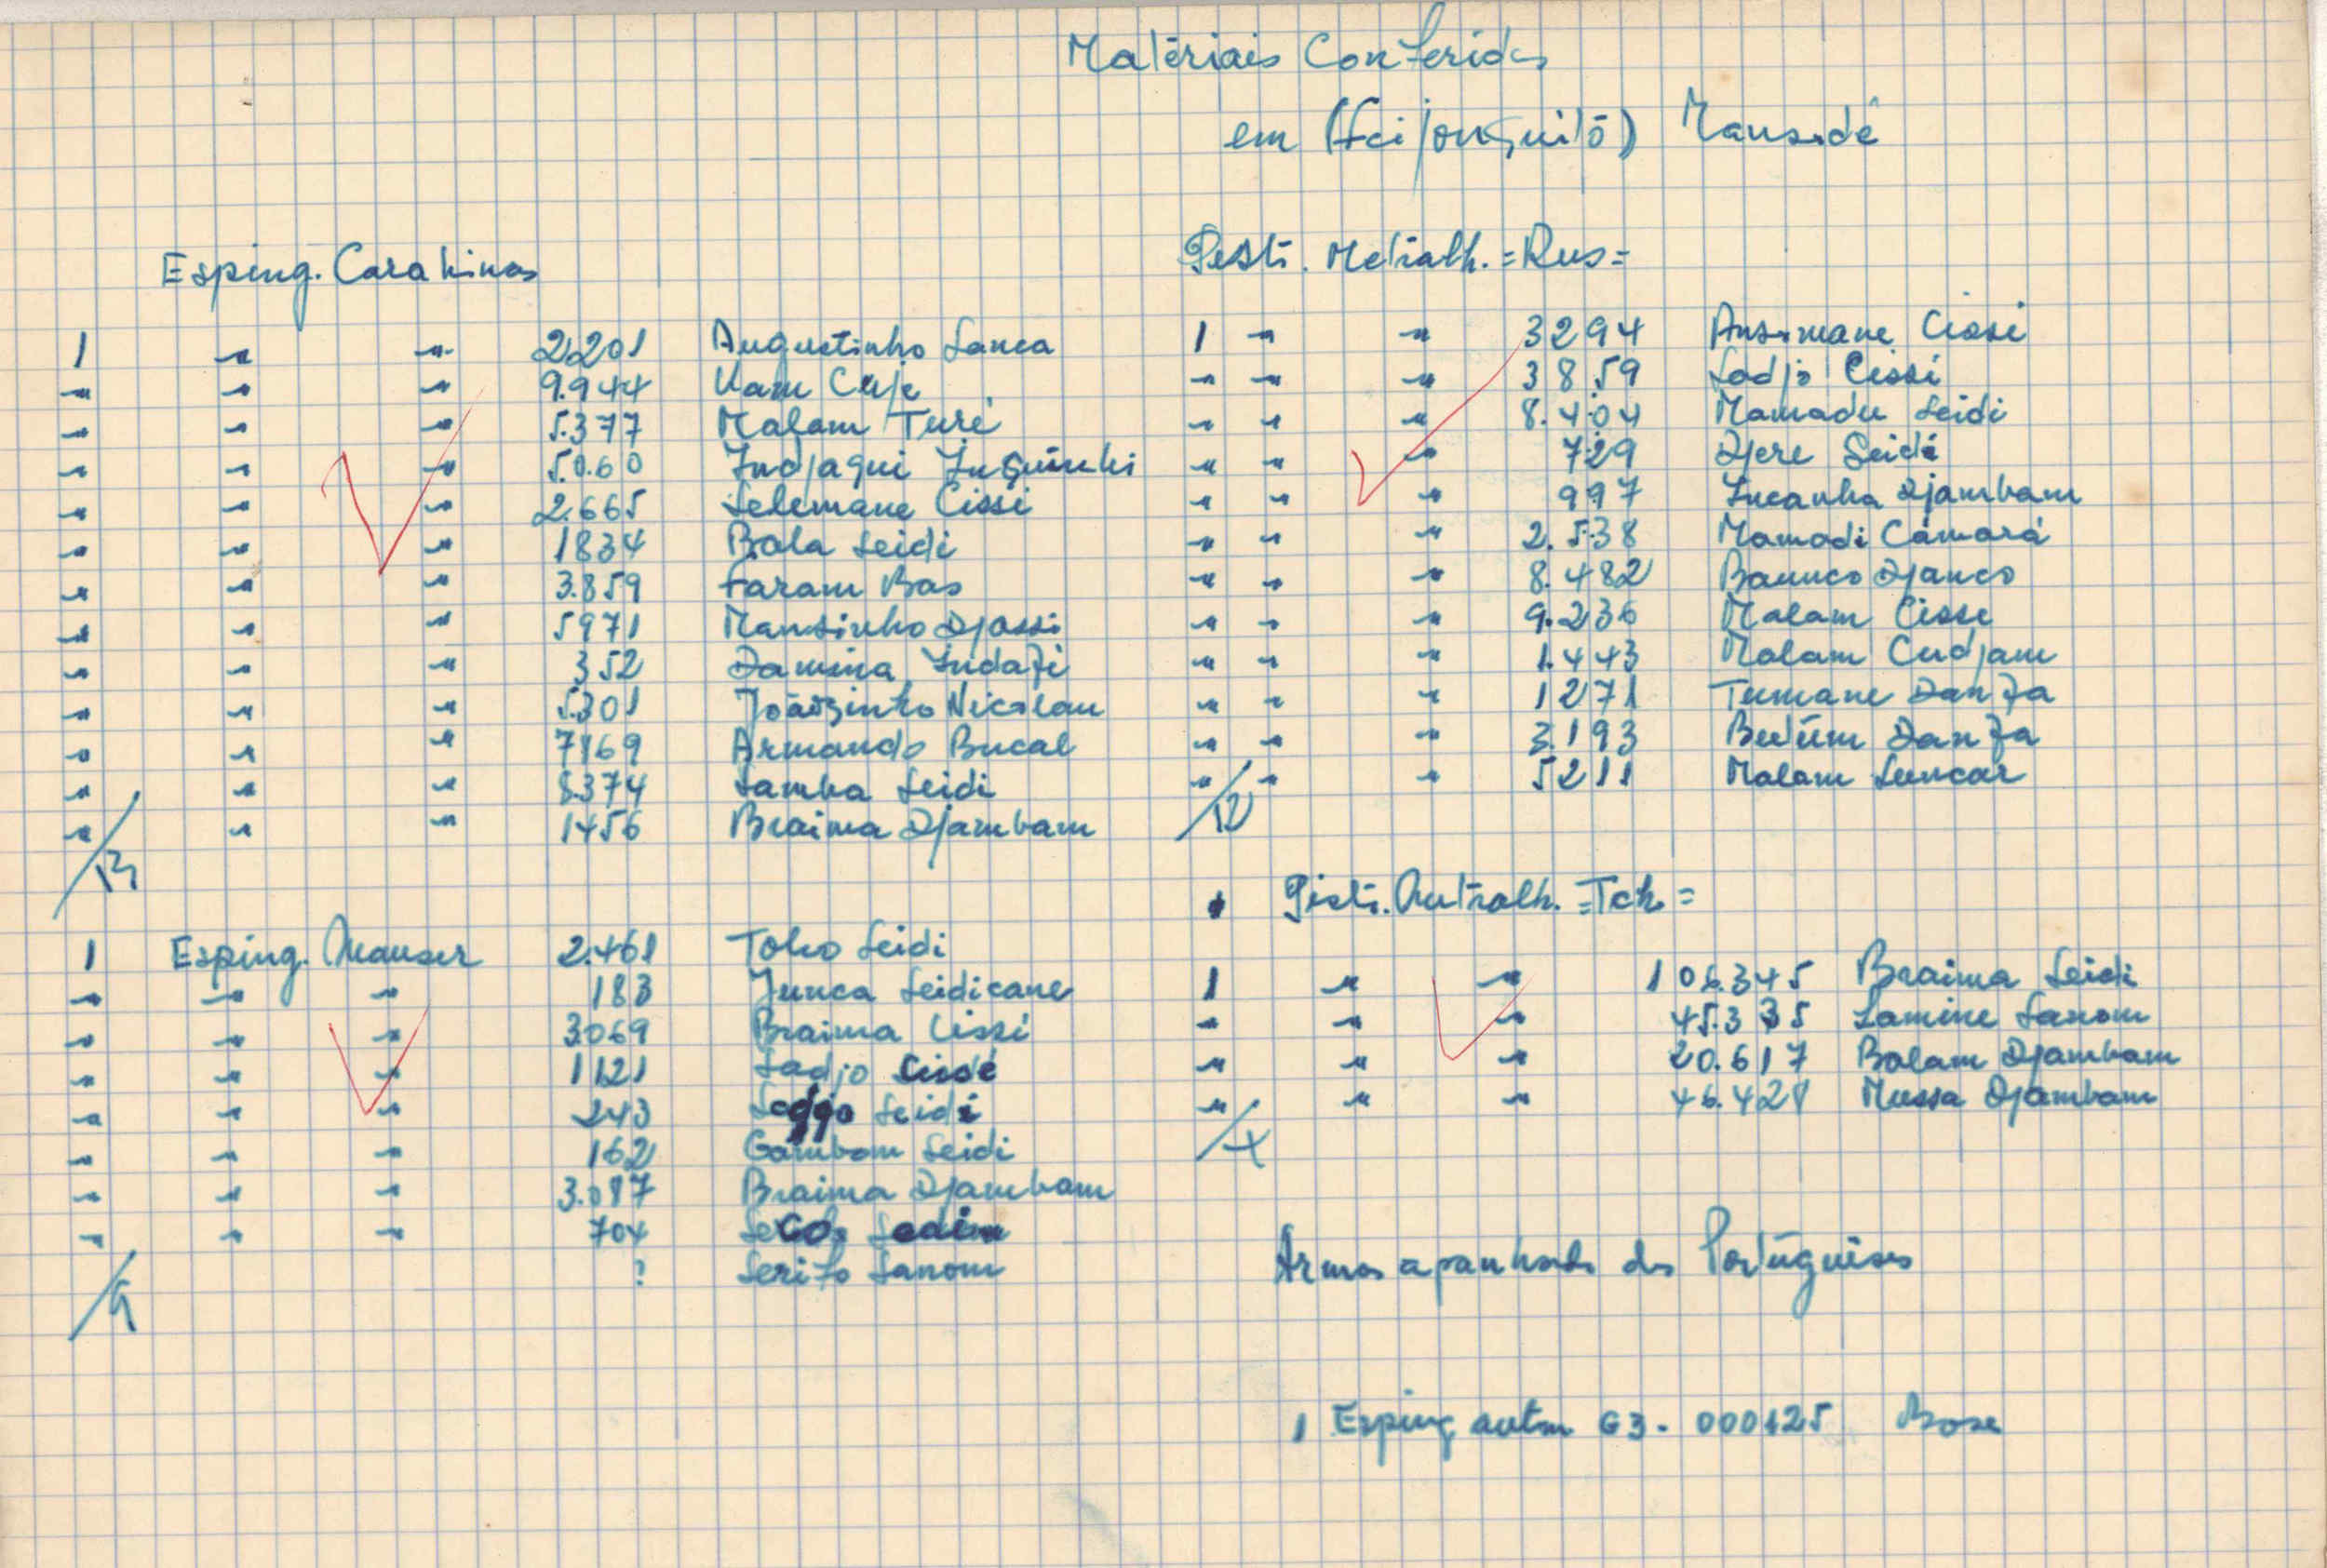 Matériais Conferidos
em (Feijonquitó) Mansodé
Esping. Carabinas
1 " " 2.201 Augustinho Sanca
" " " 9.944 Uam Cuje
" " " 5.377 Malam Turé
" " " 5.060 Indjaqui
" " " 2.665 Selemane Cissi
" " " 1834 Bala Seidi
" " " 3.859 Faram Bas
" " " 5971 Mansinho Djassi
" " " 352 Damina Indafi
" " " 5.301 Joãozinho Nicolau
" " " 7169 Armando Bucal
" " " 8374 Samba Seidi
" " " 1456 Braima Djambam
/13
1 Esping. Mauser 2.461 Toko Seidi
" " " 183 Junca Seidicane
" " " 3069 Braima Cissi
" " " 1121 Sadjo Cissé
" " " 243 Sadjo Seidi
" " " 162 Gambom Seidi
" " " 3.087 Braima Djambam
" " " 704 Seco
? Serifo Sanom
/9
Pisti. Metralh. =Rus=
1 " " 3294 Ansumane Cissi
" " " 3859 Sadjo Cissi
" " " 8.404 Mamadu Seidi
" " " 729 Djere Seidi
" " " 997 Incanha Djambam
" " " 2.538 Mamadi Cámará
" " " 8.482 Baunco Djanco
" " " 9.236 Malam Cisse
" " " 1.443 Malam Cudjam
" " " 1271 Tumane Danfa
" " " 3.193 Danfa
" " " 5211 Malam Suncar
/12
Pisti. Metralh. =Tch.=
1 " " 106.345 Braima Seidi
" " " 45.335 Lamine Sanom
" " " 20.617 Balam Djambam
" " " 46.421 Mussa Djambam
/4
Armas apanhadas dos Portuguêses
1 Esping autm G3 - 000125 Base